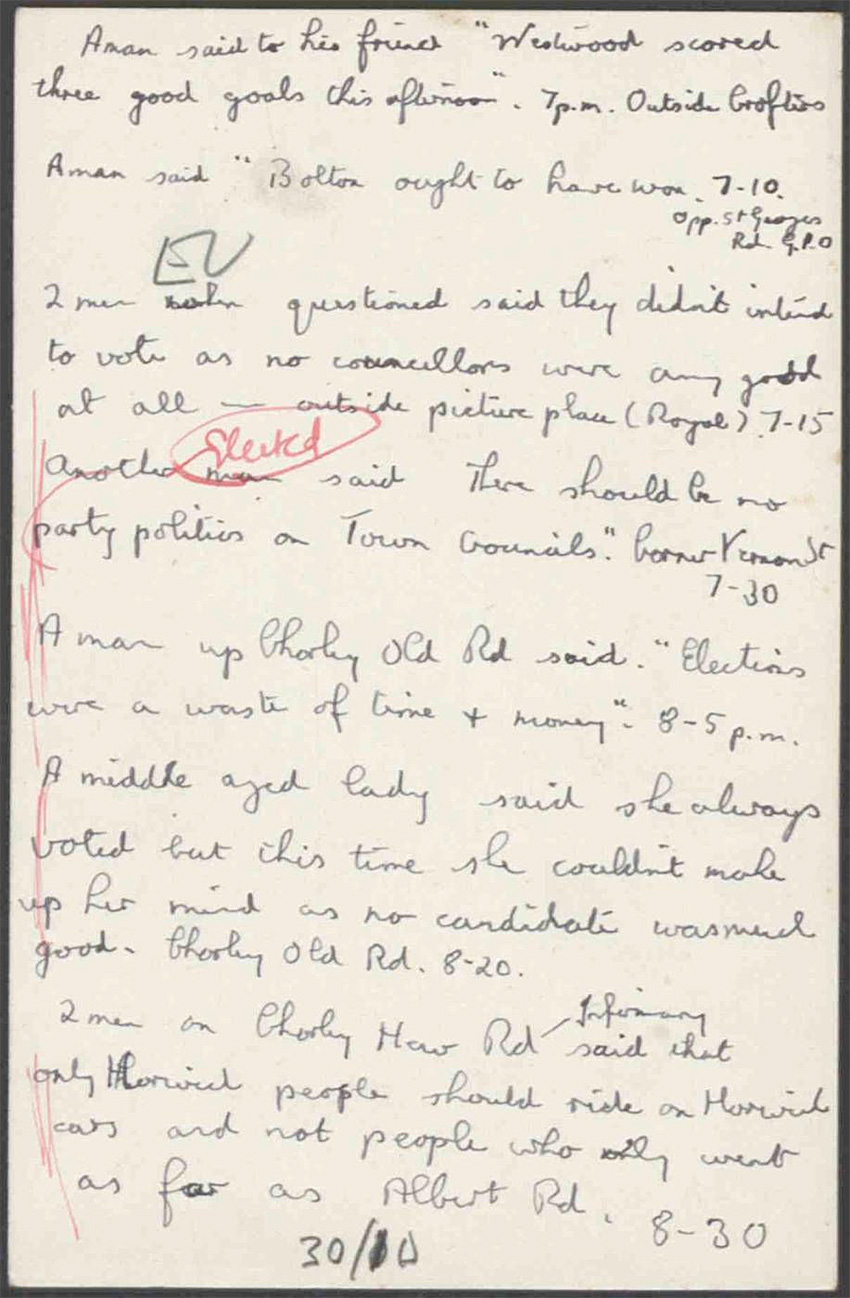 A man said to his friend "Westwood scored
three good goals this afternoon". 7p.m. Outside Croftios
A man said "Bolton ought to have won. 7-10.
Opp. St Georges
Rd. G.P.O
EV
2 men when questioned said they didn't intend
to vote as no councillors were any good
at all — outside picture place (Royal) 7-15
Elected
Another man said There should be no
party politics on Town Councils." Corner Vernon St
7-30
A man up Chorley Old Rd said. "Elections
were a waste of time + money". 8-5 p.m.
A middle aged lady said she always
voted but this time she couldn't make
up her mind as no candidate was much
good. Chorley Old Rd. 8-20.
Infirmary
2 men on Chorley New Rd said that
only Horwich people should ride on Horwich
cars and not people who only went
as far as Albert Rd. 8-30
30/10